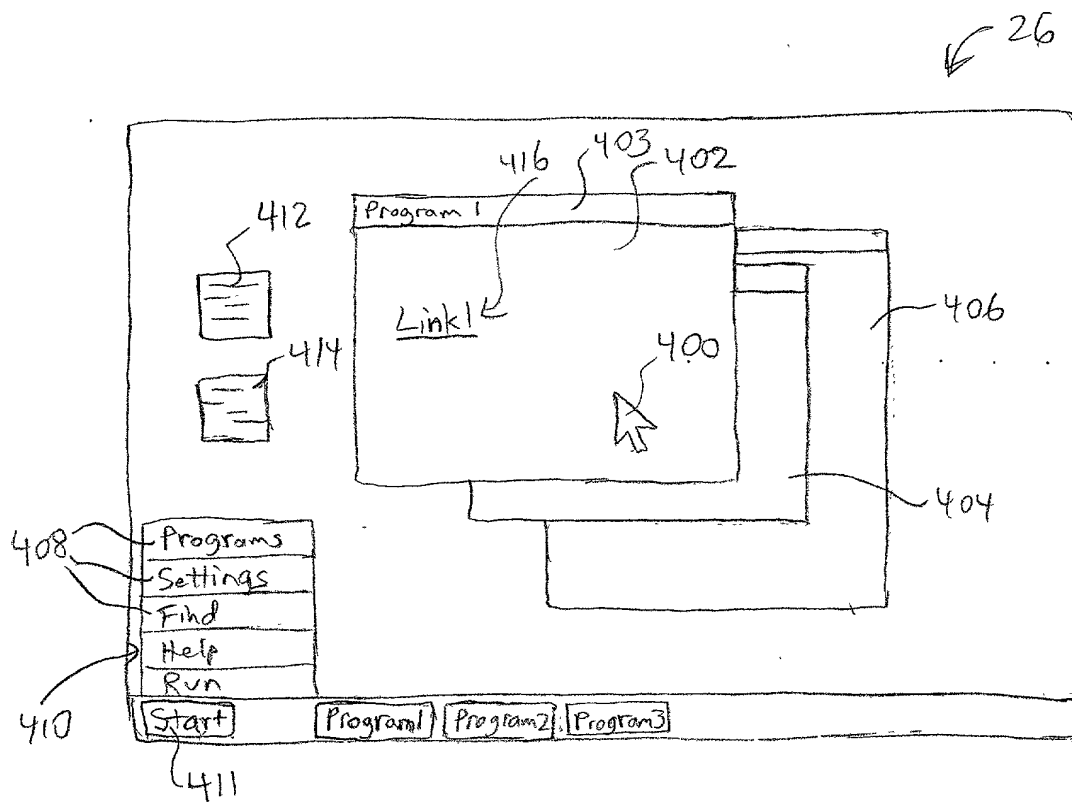 26
403
402
416
Program 1
412
406
Link1
400
414
404
408
Programs
Settings
Find
Help
Run
410
Start
Program1
Program2
Program3
411